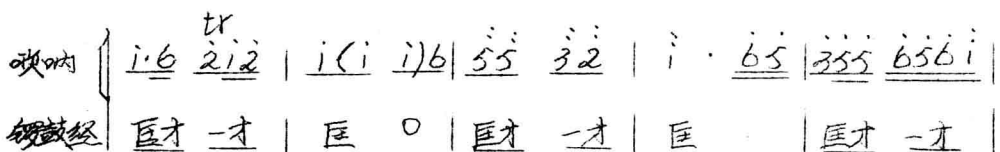 tr
唢呐 i·6 2i2 | i(i i)6 | 55 32 | i · 65 | 355 656i |
锣鼓经 匡才 一才 | 匡 0 | 匡才 一才 | 匡 | 匡才 一才 |